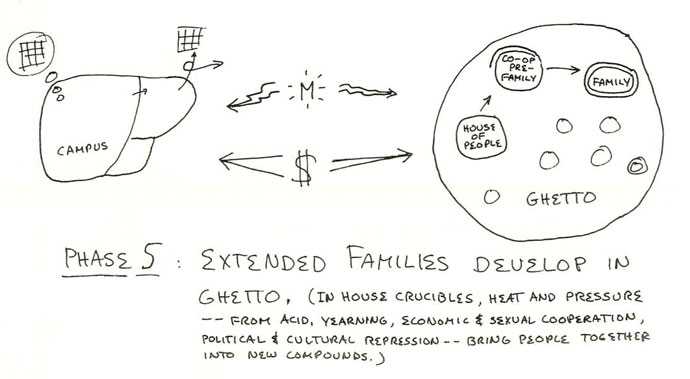 CAMPUS
M
$
CO-OP
PRE-
FAMILY
FAMILY
HOUSE
OF
PEOPLE
GHETTO
PHASE 5 : EXTENDED FAMILIES DEVELOP IN
GHETTO. (IN HOUSE CRUCIBLES, HEAT AND PRESSURE
-- FROM ACID, YEARNING, ECONOMIC & SEXUAL COOPERATION,
POLITICAL & CULTURAL REPRESSION -- BRING PEOPLE TOGETHER
INTO NEW COMPOUNDS.)